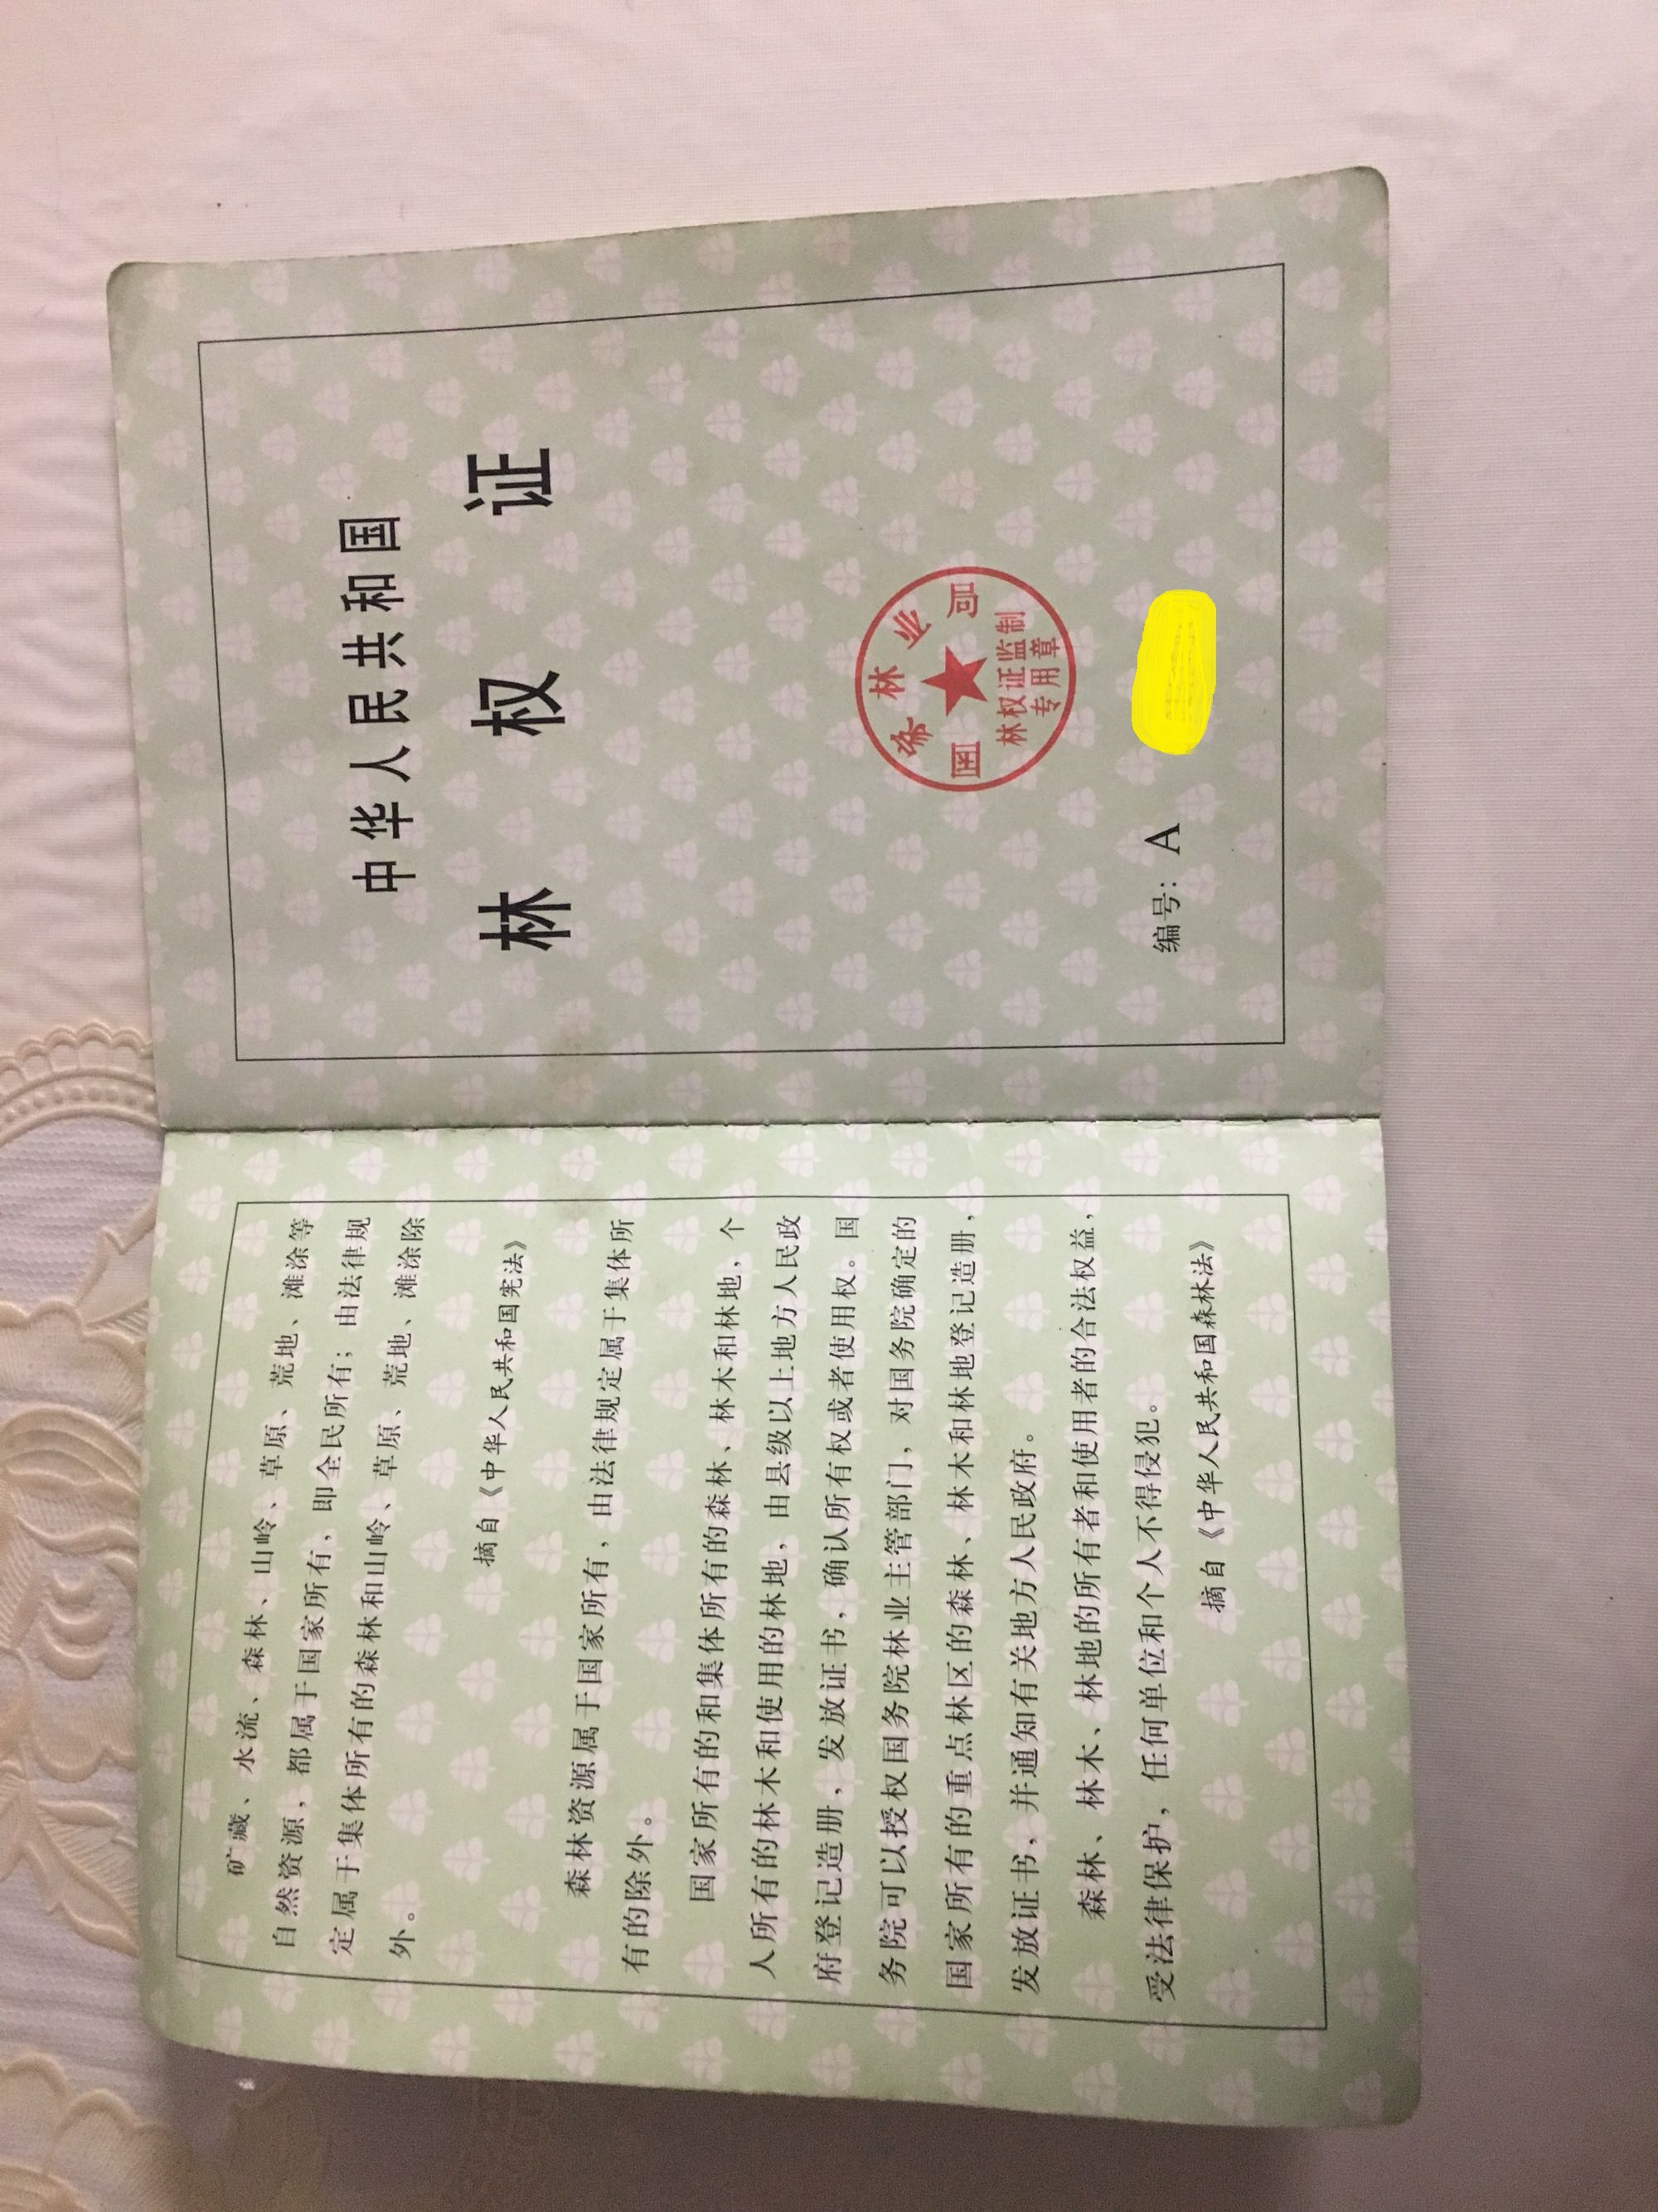 矿藏、水流、森林、山岭、草原、荒地、滩涂等
自然资源，都属于国家所有，即全民所有；由法律规
定属于集体所有的森林和山岭、草原、荒地、滩涂除
外。
摘自《中华人民共和国宪法》
森林资源属于国家所有，由法律规定属于集体所
有的除外。
国家所有的和集体所有的森林、林木和林地，个
人所有的林木和使用的林地，由县级以上地方人民政
府登记造册，发放证书，确认所有权或者使用权。国
务院可以授权国务院林业主管部门，对国务院确定的
国家所有的重点林区的森林、林木和林地登记造册，
发放证书，并通知有关地方人民政府。
森林、林木、林地的所有者和使用者的合法权益，
受法律保护，任何单位和个人不得侵犯。
摘自《中华人民共和国森林法》
中华人民共和国
林权证
国家林业局
林权证监制
专用章
编号：A